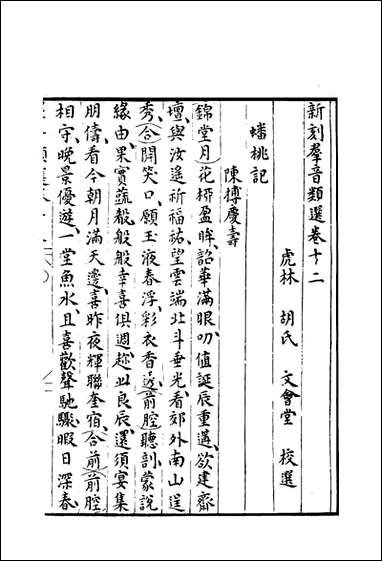 新刻羣音類選卷十二
虎林 胡氏 文會堂 校選
蟠桃記
陳摶慶壽
錦堂月)花桺盈眸、韶華滿眼、叨值誕辰重遘、欲建齋
壇、與汝遥祈福祐、望雲端北斗垂光、看郊外南山逞
秀、(合)開笑口、願玉液春浮、彩衣香透(前腔)聽剖、蒙說
緣由、果實蔬殽般般幸喜俱週、趂此良辰、還須宴集
朋儔、看今朝月滿天邊、喜昨夜輝聯奎宿、(合前)(前腔)
相守、晚景優遊、一堂魚水、且喜歡聲馳驟、暇日深春、